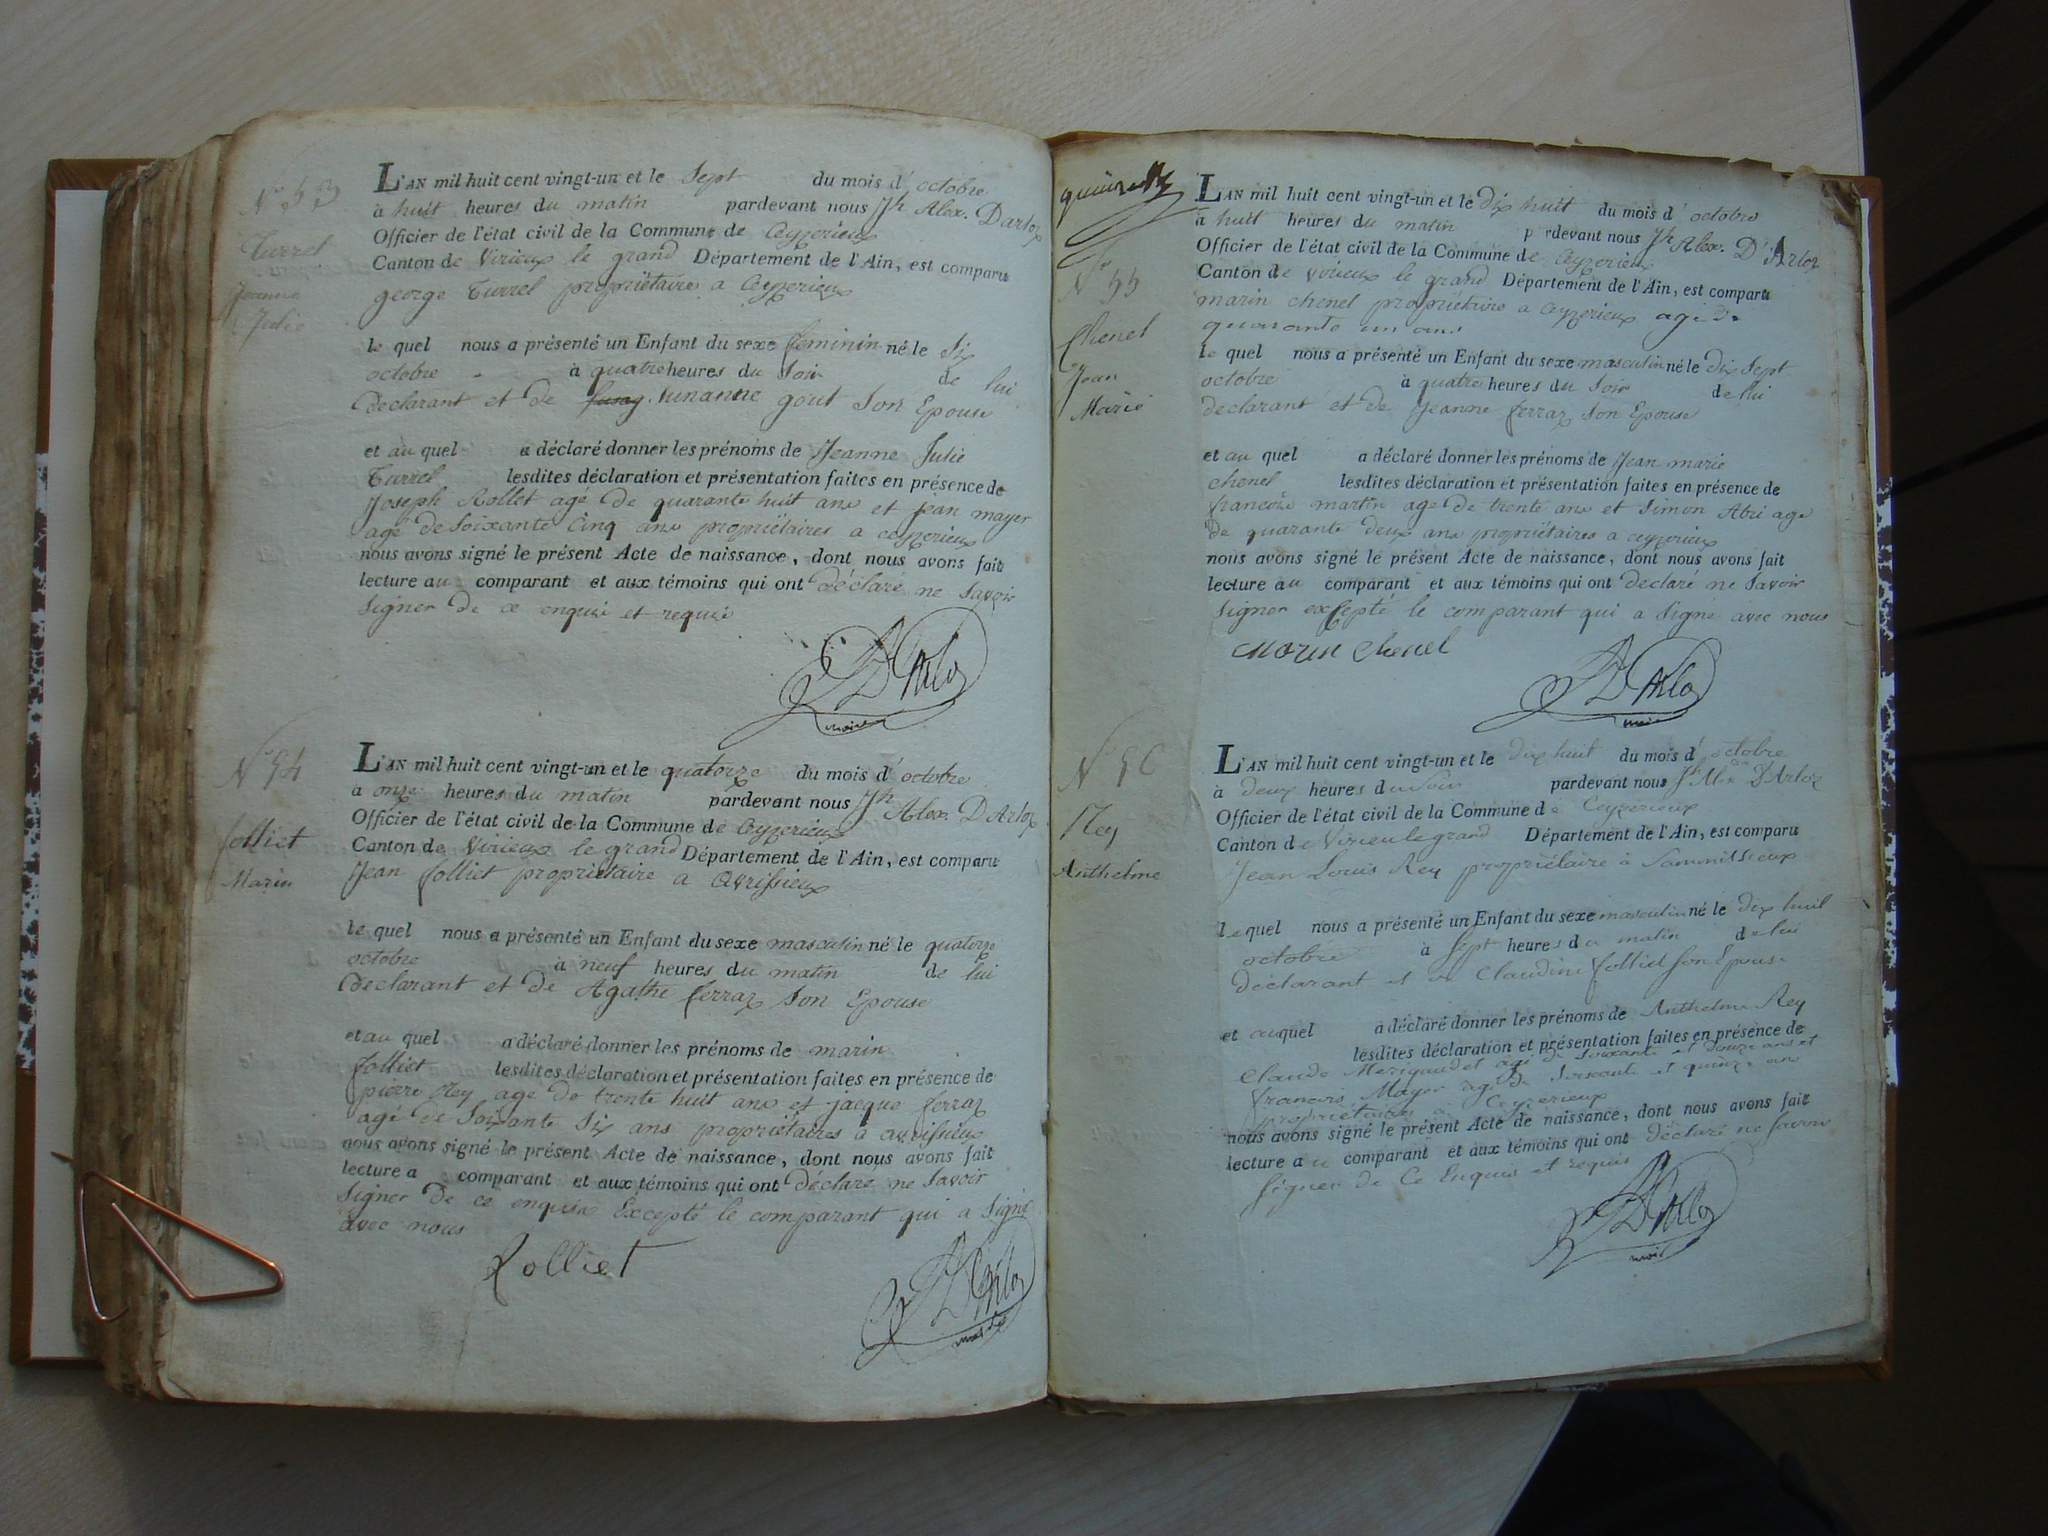 N° 53
Turrel
Jeanne
Julie
L'AN mil huit cent vingt-un et le Sept du mois d'octobre
à huit heures du matin pardevant nous Jh Alex. Darloz
Officier de l'état civil de la Commune de Ceyzerieux
Canton de Virieux le grand Département de l'Ain, est comparu
george Turrel propriëtaires a Ceyzerieux
le quel nous a présenté un Enfant du sexe feminin né le Six
octobre à quatre heures du Soir de lui
declarant et de sunanne gout Son Epouse
et au quel a déclaré donner les prénoms de Jeanne Julie
Turrel lesdites déclaration et présentation faites en présence de
Joseph Rollet agé de quarante huit ans et jean mayer
agé de Soixante Cinq ans propriëtaires a ceyzerieux
nous avons signé le présent Acte de naissance, dont nous avons fait
lecture au comparant et aux témoins qui ont déclaré ne Savoir
Signer de ce enquis et requis
D'Arloz
maire
N° 54
folliet
Marin
L'AN mil huit cent vingt-un et le quatorze du mois d'octobre
a onze heures du matin pardevant nous Jh Alex. D'Arloz
Officier de l'état civil de la Commune de Ceyzerieux
Canton de Virieux le grand Département de l'Ain, est comparu
Jean folliet propriëtaire a Avrissieux
le quel nous a présenté un Enfant du sexe masculin né le quatorze
octobre à neuf heures du matin de lui
declarant et de Agathe ferraz Son Epouse
et au quel a déclaré donner les prénoms de marin
folliet lesdites déclaration et présentation faites en présence de
pierre Rey age de trente huit ans et jacque ferraz
agé de Soixante Six ans propriëtaires a avrissieux
nous avons signé le présent Acte de naissance, dont nous avons fait
lecture a comparant et aux témoins qui ont déclaré ne Savoir
Signer de ce enquis Excepté le comparant qui a Signé
avec nous
folliet
D'Arloz
N° 55
Chenel
Jean
Marie
L'AN mil huit cent vingt-un et le dix huit du mois d'octobre
a huit heures du matin pardevant nous Jh Alex. D'Arloz
Officier de l'état civil de la Commune de Ceyzerieux
Canton de Virieux le grand Département de l'Ain, est comparu
marin chenel propriëtaire a ceyzerieux agé de
quarante un ans
le quel nous a présenté un Enfant du sexe masculin né le dix Sept
octobre à quatre heures du Soir de lui
declarant et de Jeanne ferraz Son Epouse
et au quel a déclaré donner les prénoms de Jean marie
chenel lesdites déclaration et présentation faites en présence de
francois martin age de trente ans et Simon Abri age
de quarante deux ans propriétaires a ceyzerieux
nous avons signé le présent Acte de naissance, dont nous avons fait
lecture au comparant et aux témoins qui ont declaré ne Savoir
Signer excepté le comparant qui a Signé avec nous
Marin Chenel
D'Arloz
maire
N° 56
Rey
Anthelme
L'AN mil huit cent vingt-un et le dix huit du mois d'octobre
à deux heures du Soir pardevant nous Jh Alex D'Arloz
Officier de l'état civil de la Commune de Ceyzerieux
Canton de Virieu le grand Département de l'Ain, est comparu
Jean Louis Rey propriétaire à
le quel nous a présenté un Enfant du sexe masculin né le dix huit
octobre à Sept heures du matin de lui
déclarant et de Claudine folliet Son Epouse
et auquel a déclaré donner les prénoms de Anthelme Rey
lesdites déclaration et présentation faites en présence de
Claude agé de Soixante et douze ans et
francois Mayer agé de Soixante et quinze ans
propriétaires à Ceyzerieux
nous avons signé le présent Acte de naissance, dont nous avons fait
lecture au comparant et aux témoins qui ont déclaré ne savoir
Signer de Ce Enquis et requis
D'Arloz
maire